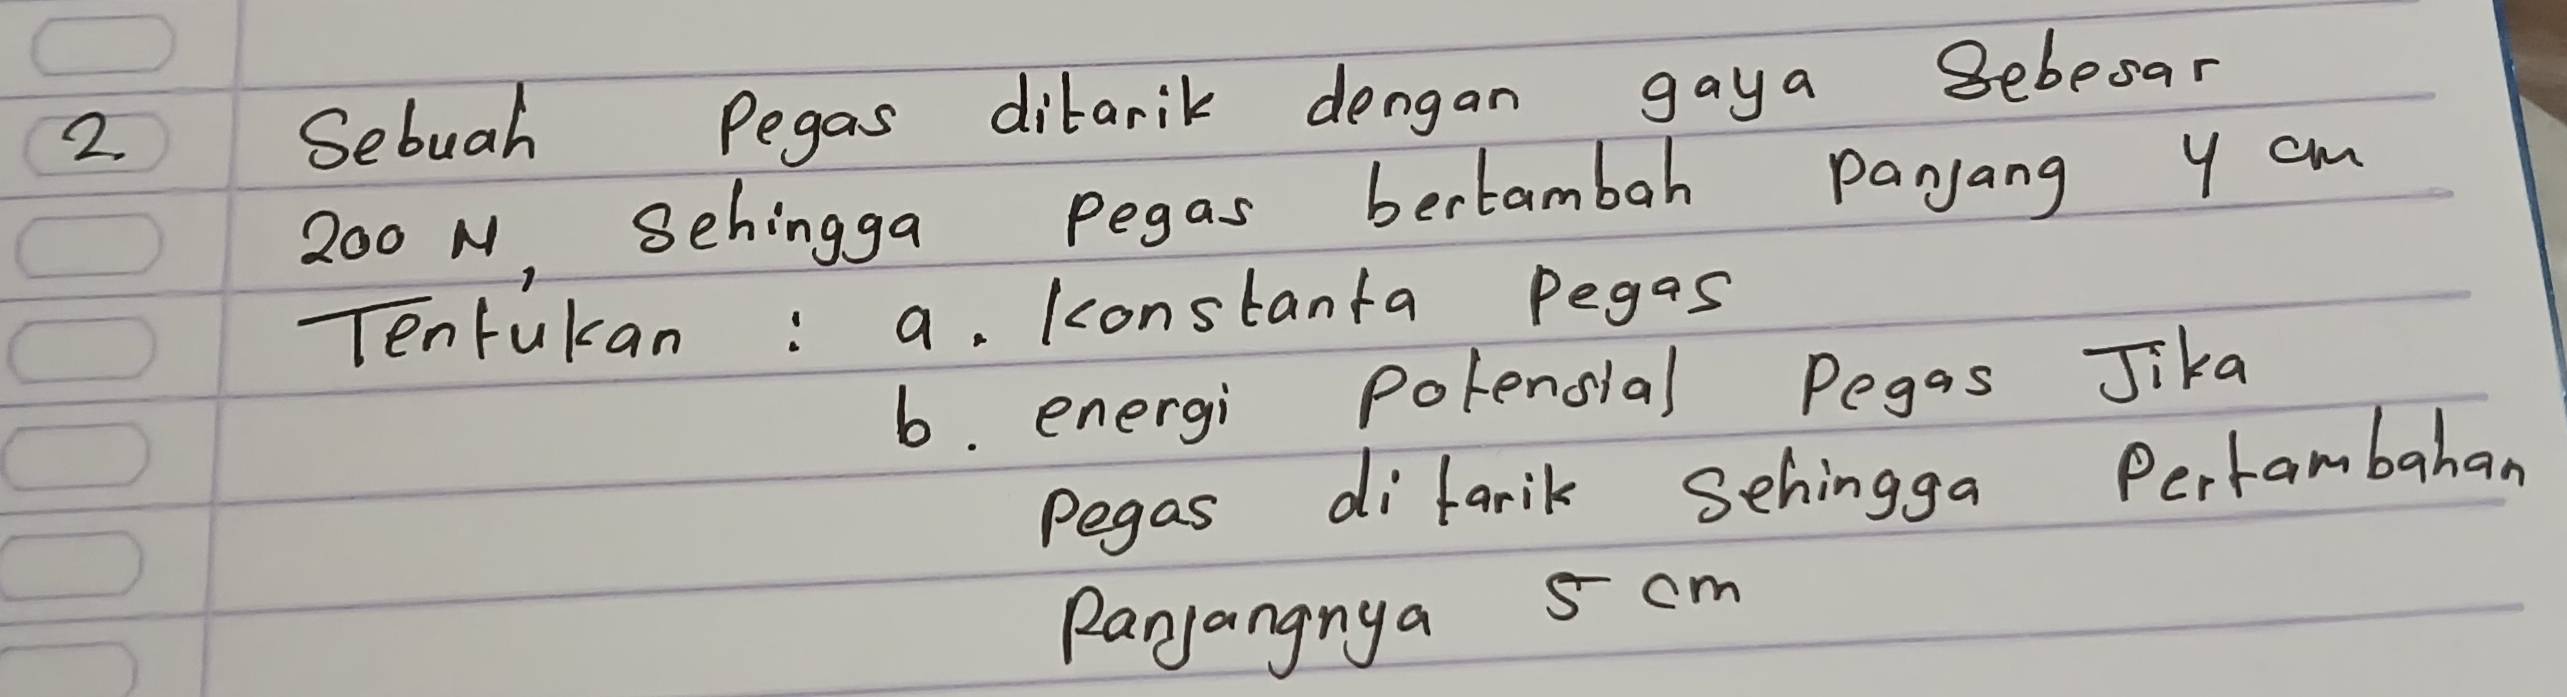 2 Sebuah Pegas ditarik dengan gaya Sebesar
200 N, Sehingga Pegas bertambah Panjang 4 cm
Tentukan : a. Konstanta Pegas
b. energi Potensial Pegas Jika
Pegas di tarik Sehingga Pertambahan
Panjangnya 5 cm